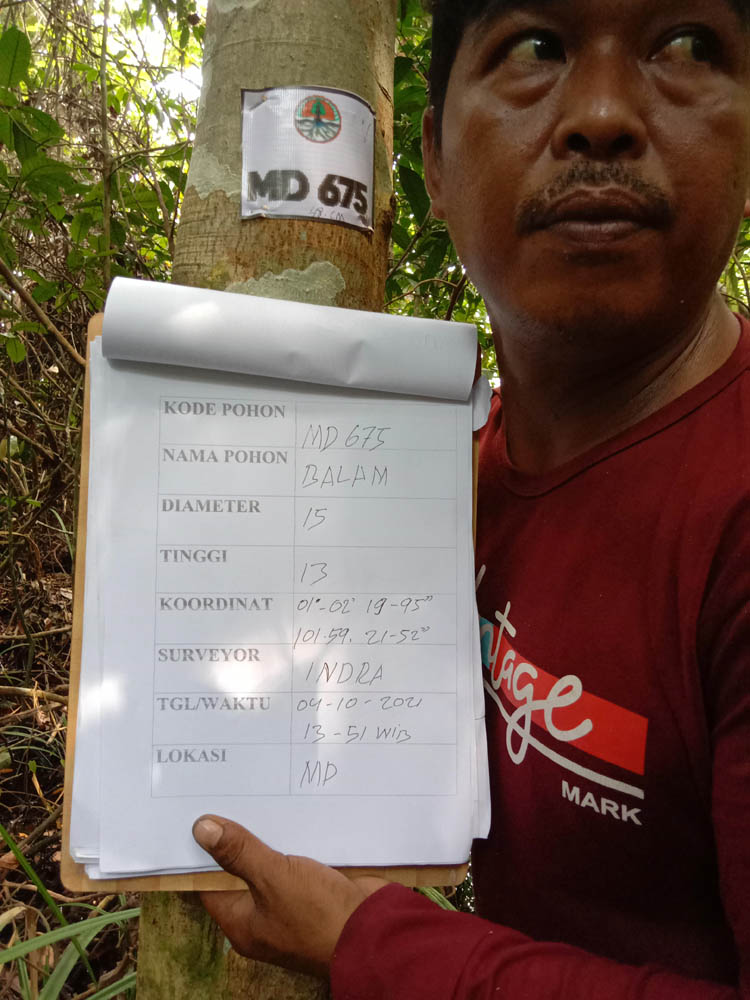 MD 675
48 CM
KODE POHON MD 675
NAMA POHON BALAM
DIAMETER 15
TINGGI 13
KOORDINAT 01°-02' 19-95"
101.59. 21-52"
SURVEYOR INDRA
TGL/WAKTU 04-10-2021
13-51 WIB
LOKASI MD
ntage
MARK